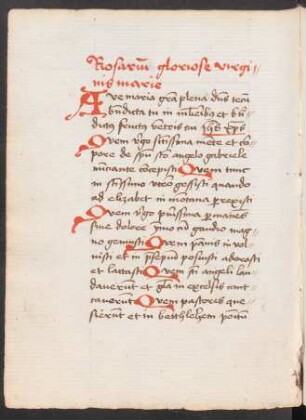 Rosariu gloriose virgi
nis marie
Ave maria gra plena dns tecu
bndicta tu in mlieribs et bn
dictus fructus ventris tui ihs xps
Quem virgo sctissima mete et cor
pore de spu sto angelo gabriele
nunciante cocepisti Quem tunc
in sctissimo utero gessisti quando
ad elizabet in motana prexisti
Quem virgo purissima prmanes
sine dolore ymo cu gaudio mag
no genuisti Quem panis in vol
uisti et in presepio posuisti adorasti
et lactasti Quem sti angeli lau
dauerut et gla in excelsis cant
tauerut Quem pastores que
sierut et in bethlehem